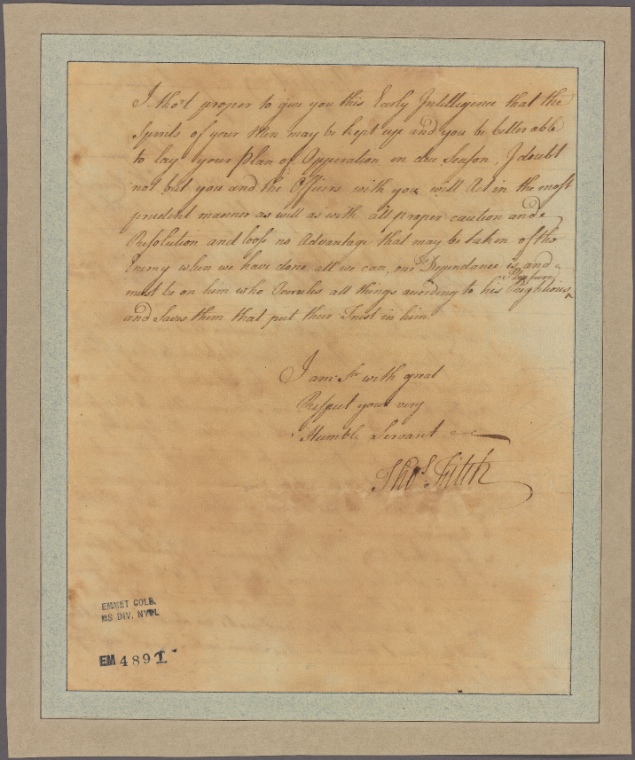 I tho't proper to give you this Early Intelligence that the
Spirits of your Men may be kept up and you be better able
to lay your Plan of Opperation in due Season, I doubt
not but you and the Officers with you will Act in the most
prudent manner as well as with all proper caution and
Resolution and loose no Advantage that may be taken of the
Enemy when we have done all we can, our Dependance is and
must be on him who Overules all things according to his Righteous Pleasure
and Saves them that put their Trust in him
I am Sr with great
Respect your very
Humble Servant
Thos. Fitch
EMMET COLL.
MS DIV. NYPL
EM 4891